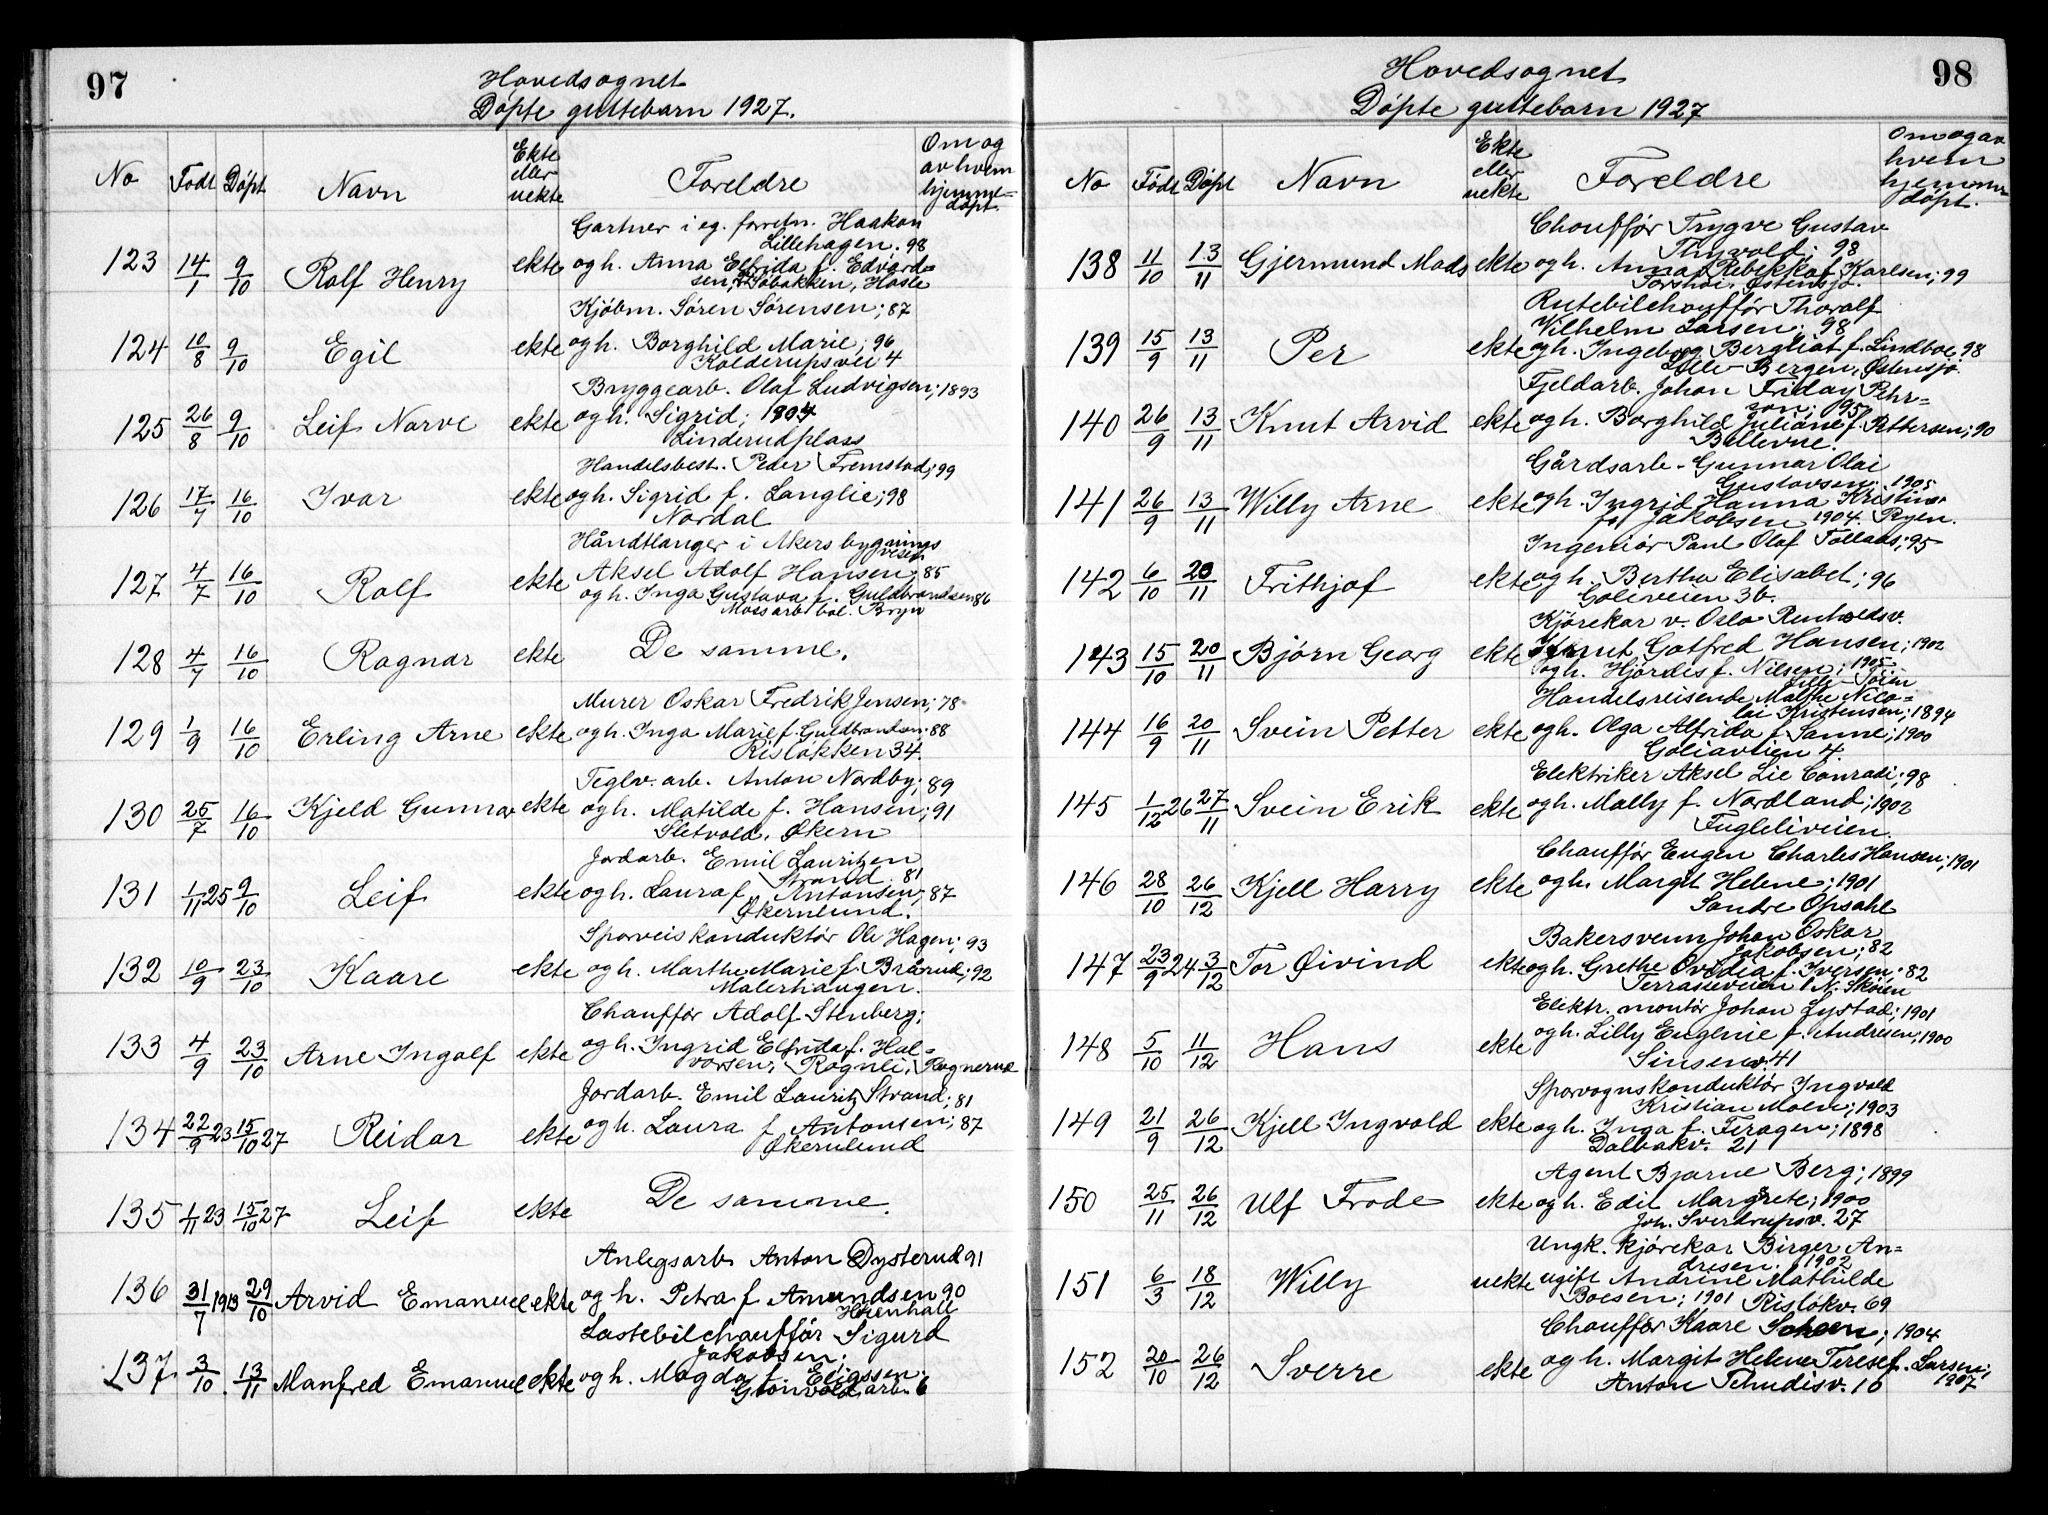 97
Hovedsognet
Døpte guttebarn 1927.
No Født Døpt Navn Ekte eller uekte Foreldre Om og av hvem hjemme=døpt.
Gartner i eg. forretn. Haakon
Lillehagen. 98
123 14/1 9/10 Rolf Henry ekte og h. Anna Elfrida f. Edvard=
sen, Hasle
Kjøbm. Søren Sørensen; 87
124 10/8 9/10 Egil ekte og h. Borghild Marie; 96
Kolderupsvei 4
Bryggearb. Olaf Ludvigsen; 1893
125 26/8 9/10 Leif Narve ekte og h. Sigrid; 1904
Linderudplass
Handelsbest. Peder Fremstad; 99
126 17/7 16/10 Ivar ekte og h. Sigrid f. Langlie; 98
Nordal
Håndtlanger i Akers bygnings
vesen
127 4/7 16/10 Rolf ekte Aksel Adolf Hansen; 85
og h. Inga Gustava f. Guldbrandsen 86
Bryn
128 4/7 16/10 Ragnar ekte De samme.
Murer Oskar Fredrik Jensen; 78
129 1/9 16/10 Erling Arne ekte og h. Inga Marie f. Guldbrandsen; 88
Risløkken 34.
Teglv. arb. Anton Nordby; 89
130 25/7 16/10 Kjeld Gunnar ekte og h. Matilde f. Hansen; 91
Sletvold, Økern
Jordarb. Emil Lauritzen
Strand. 81
131 1/11 25 9/10 Leif ekte og h. Laura f. Antonsen; 87
Økernlund.
Sporveiskonduktør Ole Hagen; 93
132 10/9 23/10 Kaare ekte og h. Marthe Marie f. Brårud; 92
Malerhaugen.
Chauffør Adolf Stenberg;
133 4/9 23/10 Arne Ingolf ekte og h. Ingrid Elfrida f. Hal=
vorsen; Rognli, Rognerud
Jordarb. Emil Lauritz Strand; 81
134 22/9 23 15/10 27 Reidar ekte og h. Laura f. Antonsen; 87
Økernlund
135 1/11 23 15/10 27 Leif ekte De samme.
Anlegsarb Anton Dysterud 91
136 31/7 1913 29/10 Arvid Emanuel ekte og h. Petra f Amundsen 90
Høienhall
Lastebilchauffør Sigurd
Jakobsen;
137 3/10 13/11 Manfred Emanuel ekte og h. Magda f. Eliassen;
6
98
Hovedsognet
Døpte guttebarn 1927
No Født Døpt Navn Ekte eller uekte Foreldre Om og av hvem hjemme døpt.
Chauffør Trygve Gustav
Thyvold; 98
138 11/10 13/11 Gjermund Mads ekte og h. Anna Rebekka f. Karlsen; 99
Torshøi, Østensjø.
Rutebilchauffør Thoralf
Vilhelm Larsen; 98
139 15/9 13/11 Per ekte og h. Ingeborg Bergliot f. Lindboe 98
Lille Bergen, Østensjø.
Fjeldarb. Johan Friday Pehr=
son; 95
140 26/9 13/11 Knut Arvid ekte og h. Borghild Juliane f. Pettersen; 90
Bellevue.
Gårdsarb. Gunnar Olai
Gustavsen; 1905
141 26/9 13/11 Willy Arne ekte og h. Ingrid Hanna Kristine
f. Jakobsen 1904. Ryen.
Ingeniør Paul Olaf Tollaas; 95
142 6/10 20/11 Frithjof ekte og h. Bertha Elisabet; 96
Goliveien 3b.
Kjørekar v. Oslo Renholdsv.
143 15/10 20/11 Bjørn Georg ekte Knut Gotfred Hansen; 1902
og h. Hjørdis f. Nilsen; 1905
Lille-Tøien
Handelsreisende Malthe Nico=
lai Kristensen; 1894
144 16/9 20/11 Svein Petter ekte og h. Olga Alfrida f Sanne; 1900
Goliaveien 4.
Elektriker Aksel Lie Conradi; 98
145 1/12 26 27/11 Svein Erik ekte og h. Mally f. Nordland; 1902
Fugleliveien.
Chauffør Eugen Charles Hansen; 1901
146 28/10 26/12 Kjell Harry ekte og h. Margit Helene; 1901
Søndre Opsahl
Bakersvenn Johan Oskar
Jakobsen; 82
147 23/9 24 3/12 Tor Øivind ekte og h. Grethe Ovidia f. Iversen; 82
Terrasseveien 1 N. Skøien
Elektr. montør Johan Lystad; 1901
148 5/10 11/12 Hans ekte og h. Lilly Eugenie f. Andresen; 1900
Sinsenv. 41
Sporvognskonduktør Ingvald
Kristian Moen; 1903
149 21/9 26/12 Kjell Ingvald ekte og h. Inga f. Feragen; 1898
Dalbakv. 21
Agent Bjarne Berg; 1899
150 25/11 26/12 Ulf Frode ekte og h. Edil Margrete; 1900
Joh. Sverdrupsv. 27
Ungk. kjørekar Birger An=
dresen; 1902
151 6/3 18/12 Willy uekte ugift Andrine Mathilde
Boesen; 1901 Risløkv. 69
Chauffør Kaare Scheen; 1904
152 20/10 26/12 Sverre ekte og h. Margit Helene Terese f. Larsen;
Anton Tchudisv. 10 1907